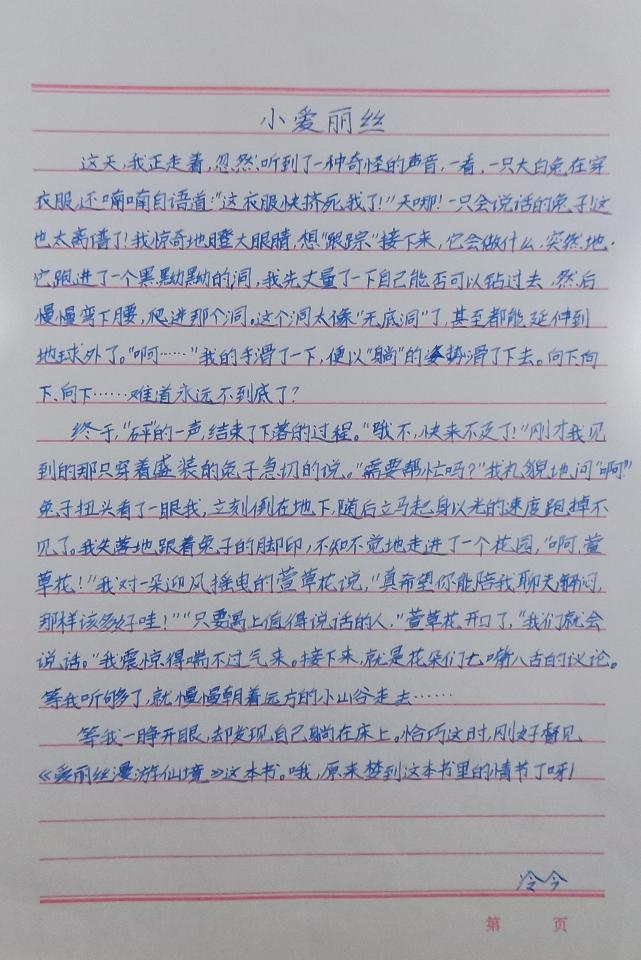 小爱丽丝
这天,我正走着,忽然,听到了一种奇怪的声音,一看,一只大白兔在穿
衣服,还喃喃自语道:"这衣服快挤死我了!"天哪!一只会说话的兔子!这
也太离谱了!我惊奇地瞪大眼睛,想"跟踪"接下来,它会做什么,突然地,
它跑进了一个黑黝黝的洞,我先丈量了一下自己能否可以钻过去,然后
慢慢弯下腰,爬进那个洞。这个洞太像"无底洞"了,甚至都能延伸到
地球外了。"啊……"我的手滑了一下,便以"躺"的姿势滑了下去。向下,向
下,向下……难道永远不到底了?
终于,"砰"的一声,结束了下落的过程。"哦不,快来不及了!"刚才我见
到的那只穿着盛装的兔子急切的说。"需要帮忙吗?"我礼貌地问"啊!"
兔子扭头看了一眼我,立刻倒在地下,随后立马起身以光的速度跑掉不
见了。我失落地跟着兔子的脚印,不知不觉地走进了一个花园,"啊,萱
草花!"我对一朵迎风摇曳的萱草花说,"真希望你能陪我聊天解闷,
那样该多好哇!""只要遇上值得说话的人,"萱草花开口了,"我们就会
说话。"我震惊得喘不过气来。接下来,就是花朵们七嘴八舌的议论。
等我听够了,就慢慢朝着远方的小山谷走去……
等我一睁开眼,却发现自己躺在床上。恰巧这时,刚好瞥见
《爱丽丝漫游仙境》这本书。哦,原来梦到这本书里的情节了呀!
冷今
第 页